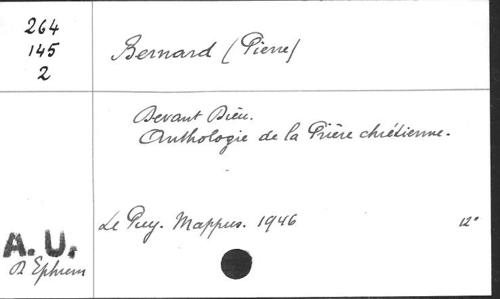 264
145
2
Bernard (Pierre)
Devant Dieu.
Anthologie de la Prière chrétienne.
Le Puy. Mappus. 1946 12°
A. U.
R Ephrem